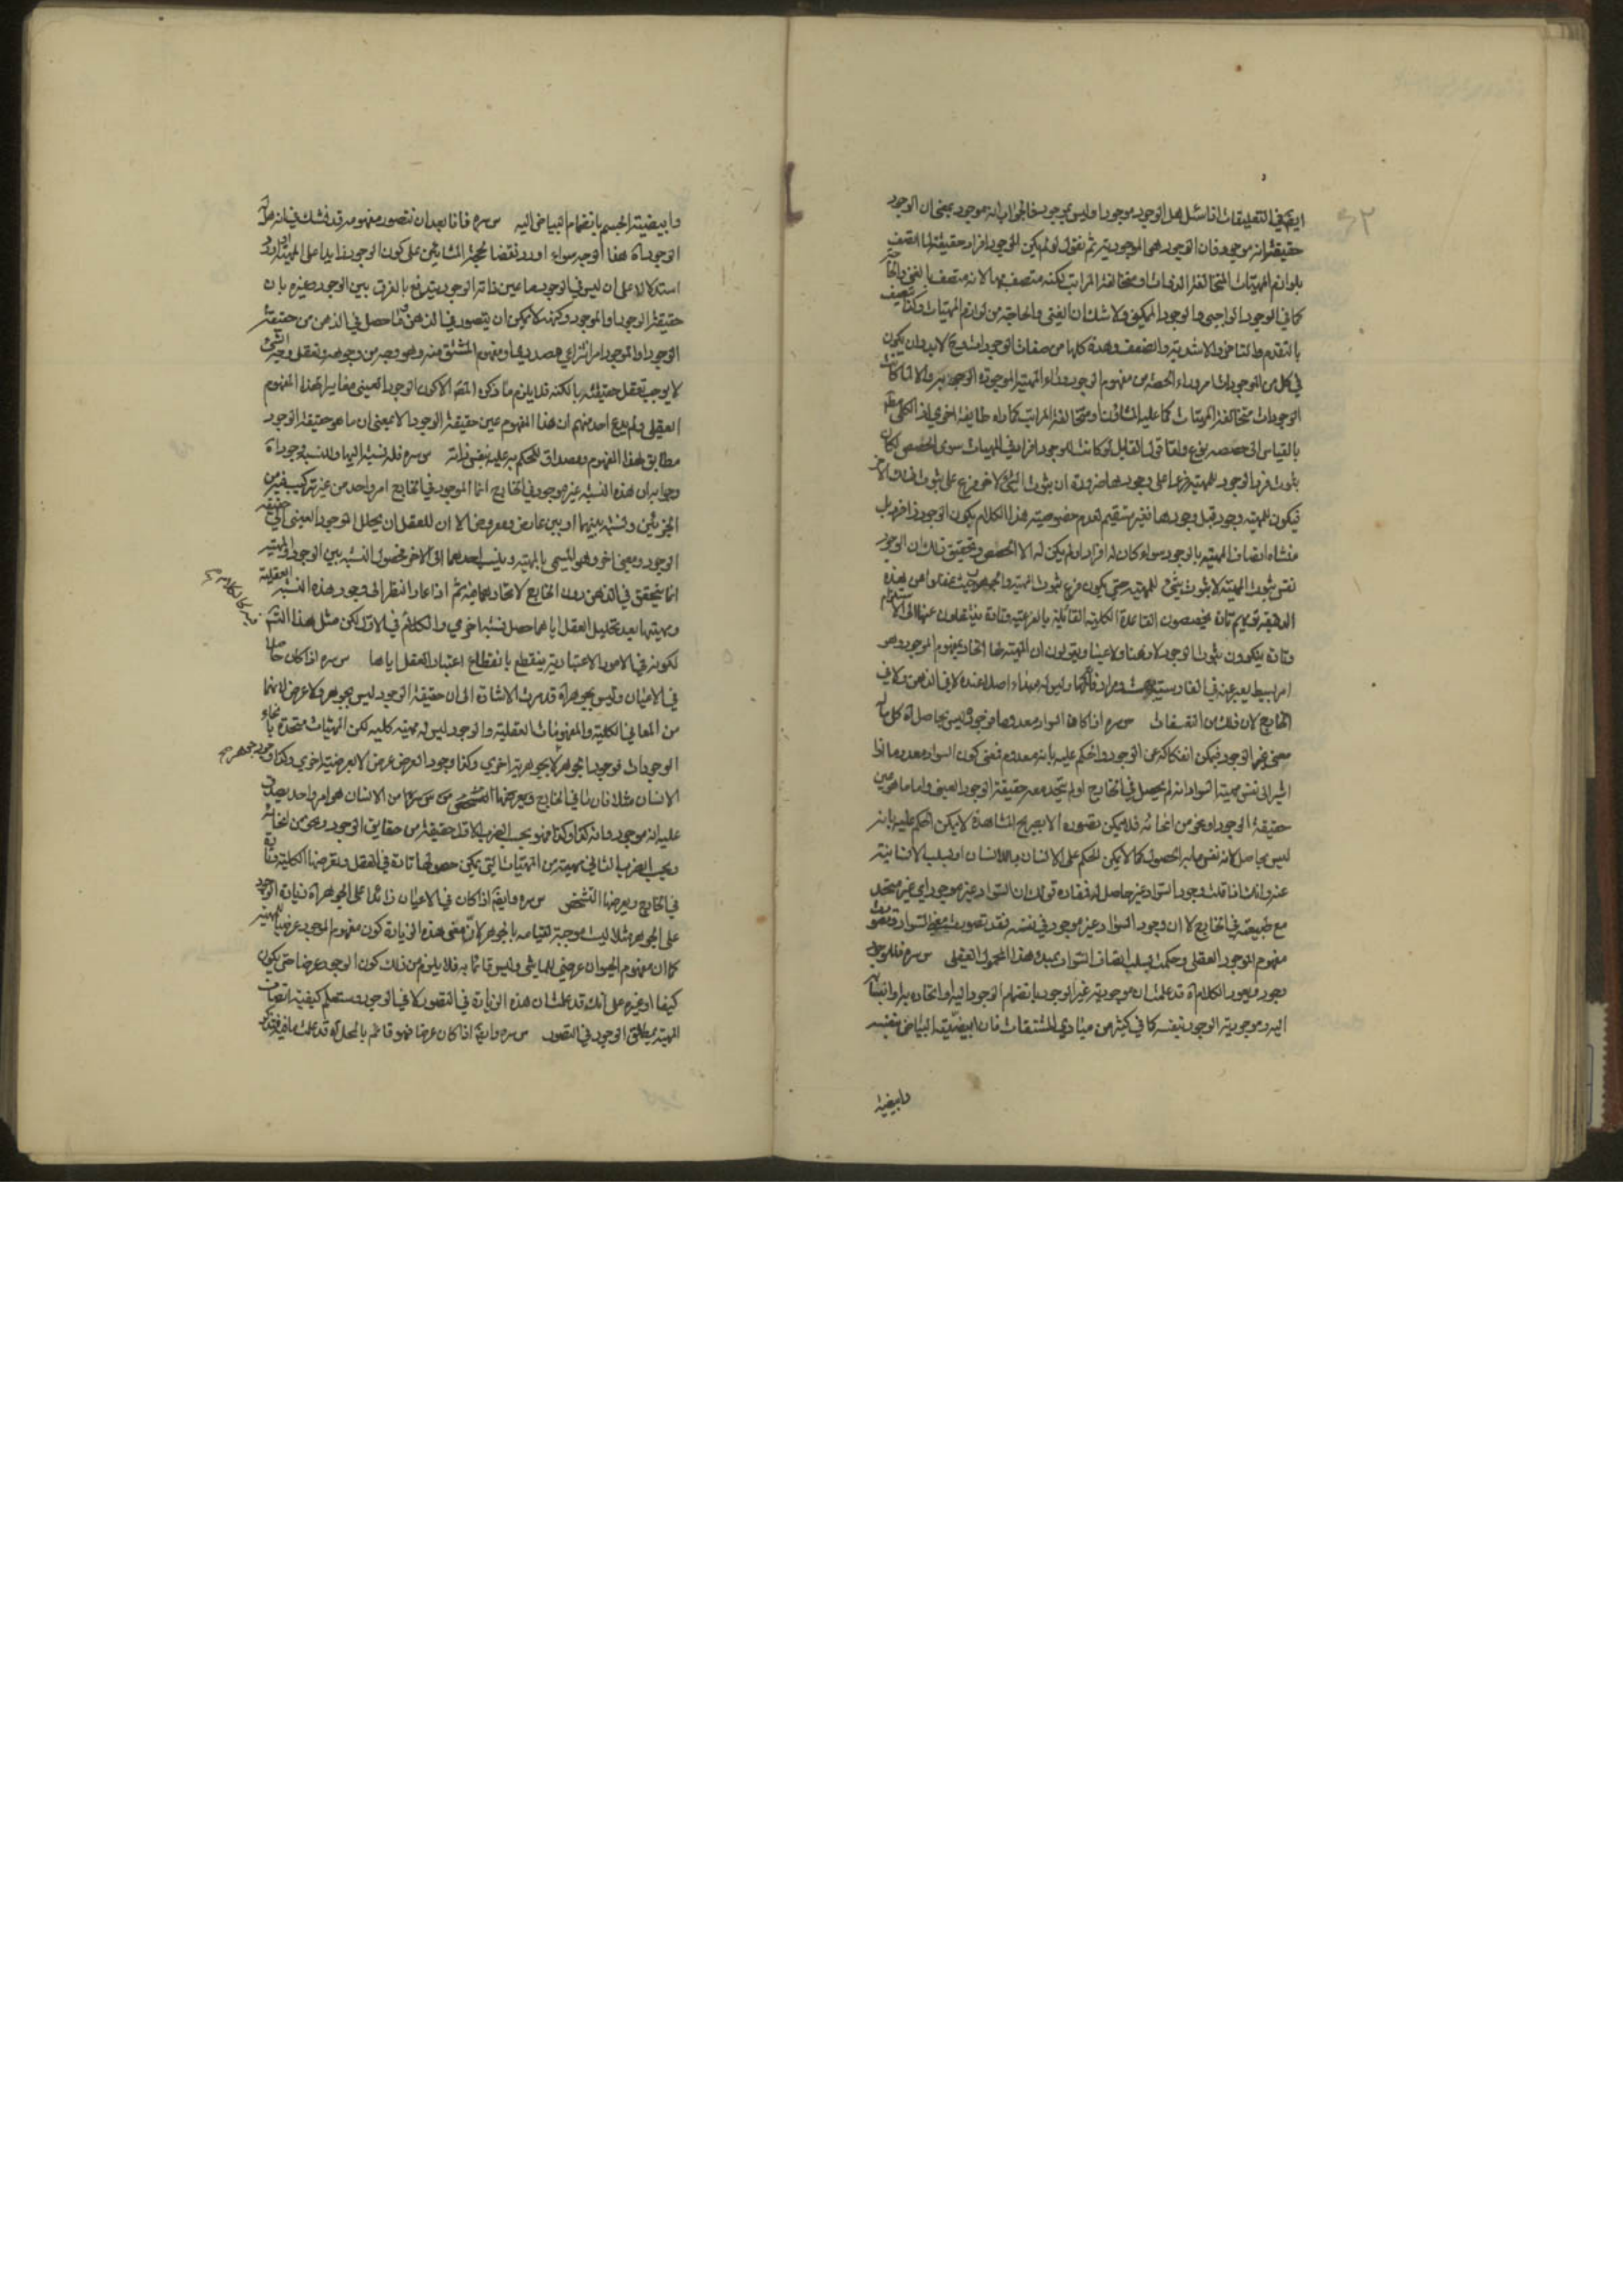 ايضا في التعليقات اذا سئل هل الوجود موجود او ليس بموجود فالجواب انه موجود بمعنى ان الوجود
حقيقته انه موجود فان الوجود هو الموجودية ثم نقول لو لم يكن للوجود افراد حقيقية لما اتصف
بلوازم المهيات المتخالفة الذوات او متخالفة المراتب لكنه متصف بها لانه متصف بالغنى والحاجة
كما في الوجود الواجبي والوجود الممكن ولا شك ان الغنى والحاجة من لوازم المهيات وكذا يتصف
بالتقدم والتاخر والاشدية والضعف وهذه كلها من صفات الوجودات وح لا بد وان يكون
في كل من الموجودات امر وراء الحصة من مفهوم الوجود وراء المهية الموجودة الوجود به والا لما كانت
الوجودات متخالفة المهيات كما عليه المشاؤن او متخالفة المراتب كما راه طايفة اخرى اذ الكلي مط
بالقياس الى حصصه نوع ولقائل لو كانت للوجود افراد في المهيات سوى الحصص لكان
ثبوت فرد الوجود للمهية فرعا على وجودها ضرورة ان ثبوت الشئ لاخر فرع على ثبوت ذلك الاخر
فيكون للمهية وجود قبل وجودها فغير مستقيم لعدم خصوصية هذا الكلام بكون الوجود ذا افراد بل
منشاه اتصاف المهية بالوجود سواء كان له افراد او لم يكن له الا الحصص وتحقيق ذلك ان الوجود
نفس ثبوت المهية لا ثبوت شئ للمهية حتى يكون فرع ثبوت المهية والجمهور حيث غفلوا عن هذه
الدقيقة تريهم تارة يخصصون القاعدة الكلية القائلة بالفرعية وتارة ينتقلون عنها الى الاستلزام
وتارة ينكرون ثبوت الوجود لا ذهنا ولا عينا ويقولون ان المهية لها اتحاد بمفهوم الموجود وهو
امر بسيط يعبر عنه في الفارسية بهست ومرادفاتها وليس له مبداء اصلا عنده لا في الذهن ولا في
الخارج لان ذلك من التفسفات س سره اذا كان السواد معدوما فوجوده ليس بحاصل اه كل ما
معنى غير الوجود فيمكن انفكاكه عن الوجود والحكم عليه بانه معدوم فمعنى كون السواد معدوما اذا
اشير الى نفس مهية السواد انه لم يحصل في الخارج او لم يتحد معه حقيقة الوجود العيني واما ما هو عين
حقيقة الوجود او نحو من انحائه فلا يمكن تصوره الا بصريح المشاهدة لا يمكن الحكم عليه بانه
ليس بحاصل لانه نفس ما به الحصول كما لا يمكن للحكم على الانسان باللاانسان او بسلب الانسانية
عنه وانك اذا قلت وجود السواد غير حاصل له فمفاده قولك ان السواد غير موجود اي غير متحد
مع طبيعته في الخارج لا ان وجود السواد غير موجود في نفسه فقد تصورت معنى السواد وتصورت
مفهوم الموجود العقلي وحكمت بسلب اتصاف السواد بمبدء هذا المحمول العقلي س سره فللوجود
وجود ويعود الكلام اه قد علمت ان موجودية غير الوجود بانضمام الوجود اليه او اتحاده به او انتسابه
اليه وموجودية الوجود بنفسه كما في كثير من مبادي المشتقات فان ابيضية البياض بنفسه
وابيضية
وابيضية الجسم بانضمام البياض اليه س سره فانا بعد ان نتصور مفهومه قد نشك في انه هل له
الوجود اه هذا الوجه سواء اورد نقضا لحجة المشايئين على كون الوجود زايدا على المهية او اورد
استدلالا على ان ليس في الوجود ما عين ذاته الوجود يندفع بالفرق بين الوجود وغيره بان
حقيقة الوجود او الموجود وكنهه لا يمكن ان يتصور في الذهن وما حصل في الذهن من حقيقة
الوجود او الموجود امر انتزاعي مصدري او مفهوم المشتق منه وهو وجه من وجوهه وتعقل وجه الشئ
لا يوجب تعقل حقيقته بالكنه فلا يلزم مما ذكره المص الا كون الوجود العيني مغايرا لهذا المفهوم
العقلي ولم يدع احد منهم ان هذا المفهوم عين حقيقة الوجود الا بمعنى ان ما هو حقيقة الوجود
مطابق لهذا المفهوم ومصداق للحكم به عليه بنفس ذاته س سره فله نسبة اليها وللنسبة وجود اه
وجوابه ان هذه النسبة غير موجودة في الخارج انما الموجود في الخارج امر واحد من غير تركيب فيه من
الجزئين ونسبة بينهما او بين عارض ومعروض الا ان للعقل ان يحلل الموجود العيني الى حقيقة
الوجود ومعنى اخر وهو المسمى بالمهية وينسب احدهما الى الاخر فحصول النسبة بين الوجود والمهية
انما يتحقق في الذهن دون الخارج لاتحادهما فيه ثم اذا عاد النظر الى وجود هذه النسبة العقلية
ومهيتها بعد تحليل العقل اياهما حصل نسبة اخرى والكلام في الاول لكن مثل هذا التسلسل
لكونه في الامور الاعتبارية ينقطع بانقطاع اعتبار العقل اياها س سره اذا كان حاصلا
في الاعيان وليس بجوهر اه قد مرت الاشارة الى ان حقيقة الوجود ليس بجوهر ولا عرض لانهما
من المعاني الكلية والمفهومات العقلية والوجود ليس له مهية كلية لكن المهيات متحدة بانحاء
الوجودات فوجود الجوهر جوهر لا بجوهرية اخرى وكذا وجود العرض عرض لا بعرضية اخرى وكذا
الانسان مثلا فان ما في الخارج ويعرضها التشخص من الانسان هو امر واحد يصدق
عليه انه موجود وانه كذا وكذا فهو بحسب الضرب الاول حقيقة من حقايق الوجود ونحو من انحائه
وبحسب الضرب الثاني مهية من المهيات التي يمكن حصولها تارة في العقل ويعرضها الكلية وتارة
في الخارج ويعرضها التشخص س سره وايضا اذا كان في الاعيان زائدا على الجوهر اه زيادة الوجود
على الجوهر مثلا ليست موجبة لقيامه بالجوهر لان معنى هذه الزيادة كون مفهوم الموجود عرضيا للمهية
كما ان مفهوم الحيوان عرضي للماشي وليس قائما به فلا يلزم من ذلك كون الوجود عرضا حتى يكون
كيفا او غيره على انك قد علمت ان هذه الزيادة في التصور لا في الوجود وستعلم كيفية اتصاف
المهية بمطلق الوجود في التصور س سره وايضا اذا كان عرضا فهو قائم بالمحل اه قد علمت ما فيه فتذكر